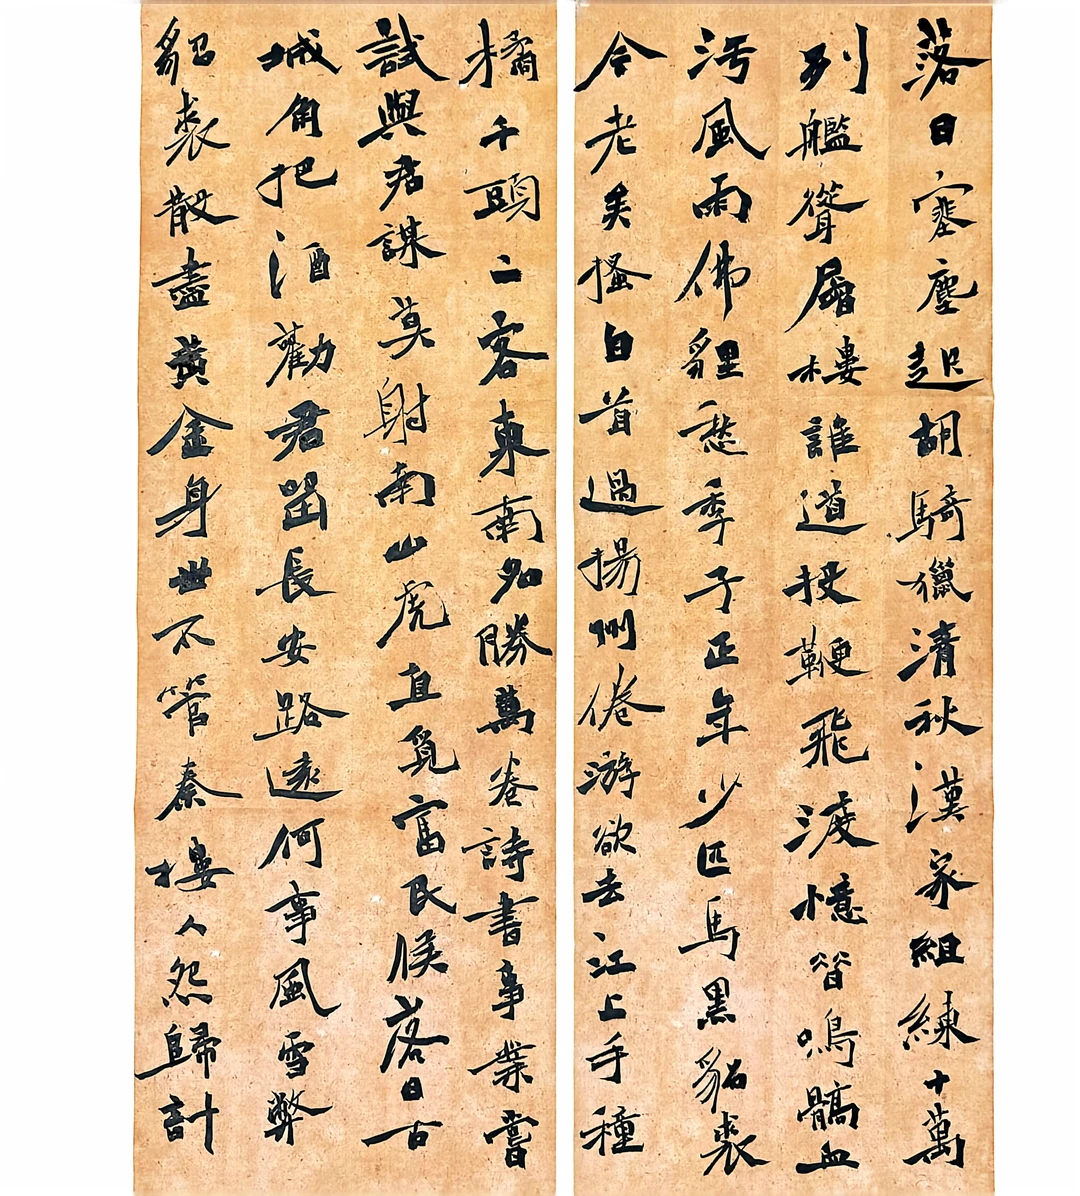 落日塞塵起胡騎獵清秋漢家組練十萬
列艦聳層樓誰道投鞭飛渡憶昔鳴髇血
污風雨佛貍愁季子正年少匹馬黑貂裘
今老矣搔白首過揚州倦游欲去江上手種
橘千頭二客東南名勝萬卷詩書事業嘗
試與君謀莫射南山虎直覓富民侯落日古
城角把酒勸君留長安路遠何事風雪弊
貂裘散盡黃金身世不管秦樓人怨歸計